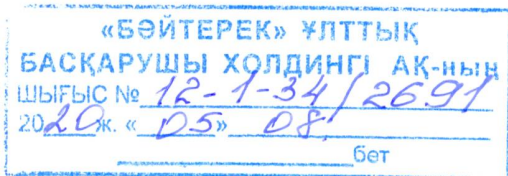 «БӘЙТЕРЕК» ҰЛТТЫҚ
БАСҚАРУШЫ ХОЛДИНГІ АҚ-ның
ШЫҒЫС № 12-1-34/2691
2020ж. «05» 08
бет